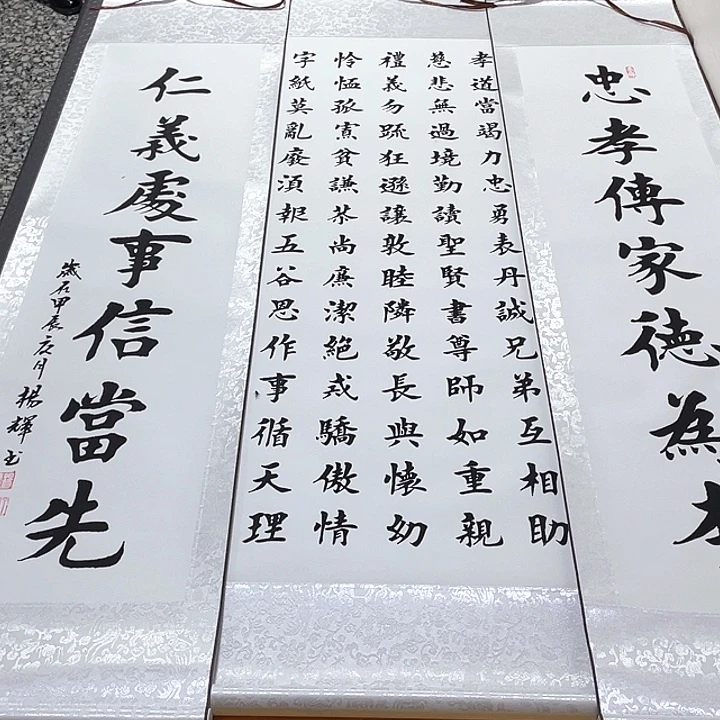 忠孝傳家德為本
孝道當竭力忠勇表丹誠兄弟互相助
慈悲無過境勤讀聖賢書尊師如重親
禮義勿踈狂遜讓敦睦隣敬長與懷幼
怜恤孤寡貧謙恭尚廉潔絕戒驕傲情
字紙莫亂廢須報五谷恩作事循天理
仁義處事信當先
歲在甲辰月楊輝